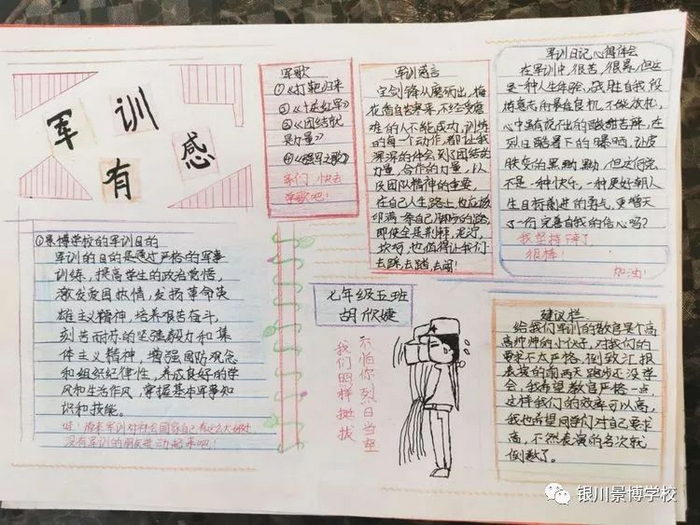 军训
有感
军歌
①《打靶归来》
②《十送红军》
③《团结就
是力量》
④《强军之歌》
军歌吧!
军训感言
宝剑锋从磨砺出,梅
花香自苦寒来,不经受磨
难的人不能成功,训练
的每一个动作,都让我
深深的体会到了团结的
力量,合作的力量,以
及团队精神的重要,
在自己人生路上也应该
印满一条自己脚印的路,
即使全是荆棘,泥泞,
坎坷,也值得让我们
去踩,去踏,去闯!
军训日记心得体会
在军训中,很苦,很累,但这
是一种人生体验,战胜自我,锻
炼意志的最佳良机,不能放松,
心中虽有说不出的酸甜苦辣,在
烈日酷暑下的曝晒,让皮
肤变的黑黝黝,但这何尝
不是一种快乐,一种更好朝人
生目标前进的勇气,更增添
了一份完善自我的信心吗?
我坚持下来了,
很棒!
加油!
①景博学校的军训目的
军训的目的是通过严格的军事
训练,提高学生的政治觉悟,
激发爱国热情,发扬革命英
雄主义精神,培养艰苦奋斗,
刻苦耐劳的坚强毅力和集
体主义精神,增强国防观念
和组织纪律性,养成良好的学
风和生活作风,掌握基本军事知
识和技能。
没有军训的朋友要动起来吧!
七年级五班
胡欣婕
不怕你烈日当空
我们照样挺拔
建议栏
给我们军训的教官是个高
高帅帅的小伙子,对我们的
要求不太严格,倒致汇报
表演的前两天跑步还没学
会,我希望教官严格一点,
这样我们的效率可以高,
我也希望同学们对自己要求
高,不然表演的名次就
倒数了。
银川景博学校